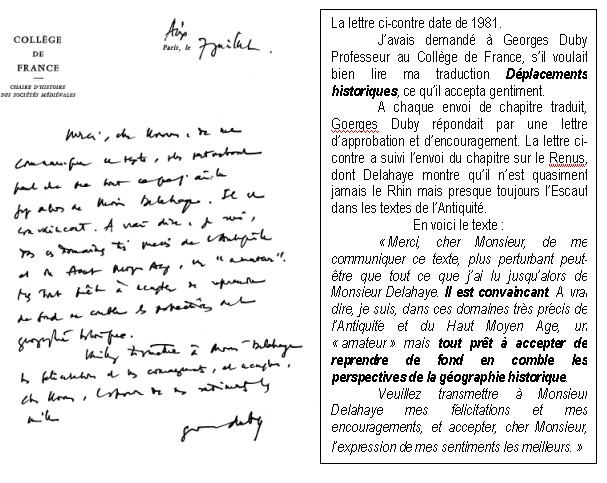 COLLÈGE
DE
FRANCE
CHAIRE D'HISTOIRE
DES SOCIÉTÉS MÉDIÉVALES
Aix
Paris, le 7 juillet.
Merci, cher Monsieur, de me
communiquer ce texte, plus perturbant
peut-être que tout ce que j'ai lu
jusqu'alors de Monsieur Delahaye. Il est
convaincant. A vrai dire, je suis,
dans ces domaines très précis de l'Antiquité
et du Haut Moyen Age, un "amateur".
mais tout prêt à accepter de reprendre
de fond en comble les perspectives de la
géographie historique.
Veuillez transmettre à Monsieur Delahaye
mes félicitations et mes encouragements, et accepter,
cher Monsieur, l'expression de mes sentiments les
meilleurs.
georges duby
La lettre ci-contre date de 1981.
J'avais demandé à Georges Duby
Professeur au Collège de France, s'il voulait
bien lire ma traduction Déplacements
historiques, ce qu'il accepta gentiment.
A chaque envoi de chapitre traduit,
Goerges Duby répondait par une lettre
d'approbation et d'encouragement. La lettre ci-
contre a suivi l'envoi du chapitre sur le Renus,
dont Delahaye montre qu'il n'est quasiment
jamais le Rhin mais presque toujours l'Escaut
dans les textes de l'Antiquité.
En voici le texte :
« Merci, cher Monsieur, de me
communiquer ce texte, plus perturbant peut-
être que tout ce que j'ai lu jusqu'alors de
Monsieur Delahaye. Il est convaincant. A vrai
dire, je suis, dans ces domaines très précis de
l'Antiquité et du Haut Moyen Age, un
« amateur » mais tout prêt à accepter de
reprendre de fond en comble les
perspectives de la géographie historique.
Veuillez transmettre à Monsieur
Delahaye mes felicitations et mes
encouragements, et accepter, cher Monsieur,
l'expression de mes sentiments les meilleurs. »